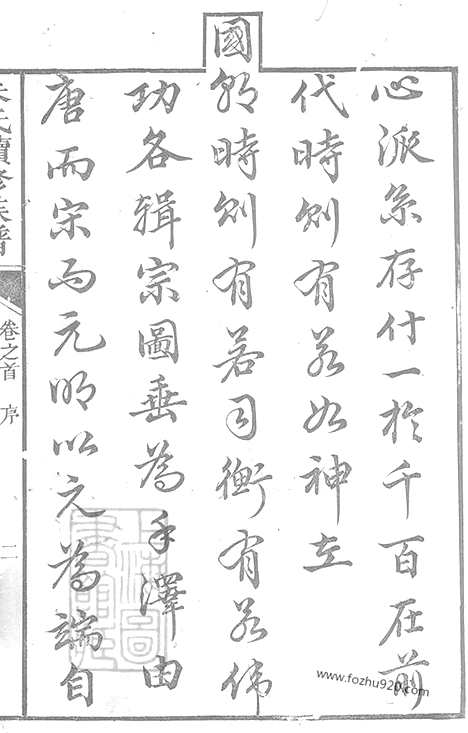 心派系存付一於千百在前
代時則有若如神左
國朝時則有若司衡有若偉
功各輯宗圖垂為手澤由
唐而宋而元明以元為端自
氏續修族譜
卷之首 序
二
www.fozhu920.com